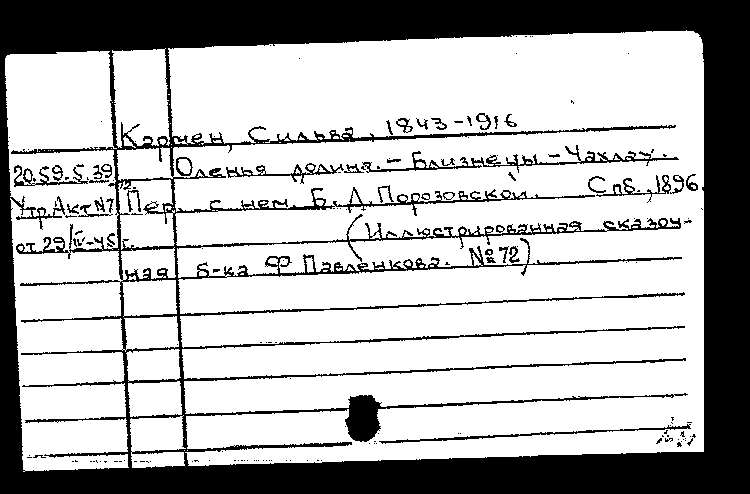 Кармен, Сильва, 1843-1916
20.59.5.39 Оленья долина. - Близнецы. - Чахлау.
Утр. Акт №7 Пер. с нем. Б. Д. Порозовской. Спб., 1896.
от 29/IV-45 г. (Иллюстрированная сказоч-
ная б-ка Ф Павленкова. № 72).